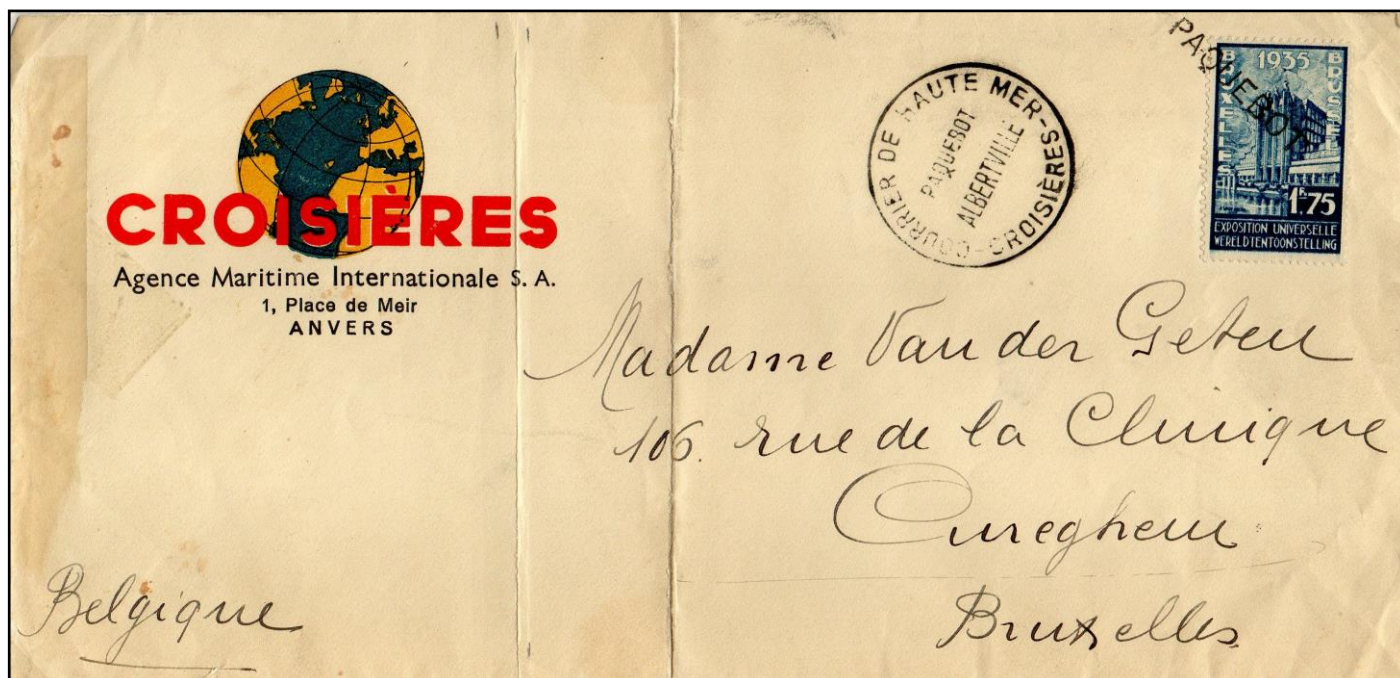 CROISIÈRES
Agence Maritime Internationale S. A.
1, Place de Meir
ANVERS
COURRIER DE HAUTE MER-SES-CROISIÈRES-
PAQUEBOT
ALBERTVILLE
PAQUEBOT
1935
BRUXELLES
BRUSSEL
1F.75
EXPOSITION UNIVERSELLE
WERELDTENTOONSTELLING
Madame Van der Geten
106. rue de la Clinique
Cureghem
Bruxelles
Belgique